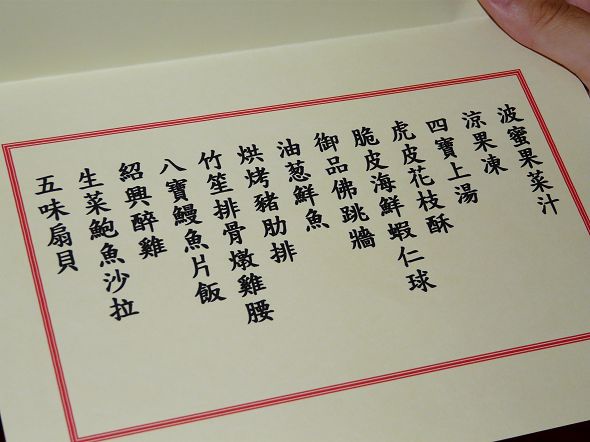 波蜜果菜汁
涼果凍
四寶上湯
虎皮花枝酥
脆皮海鮮蝦仁球
御品佛跳牆
油葱鮮魚
烘烤豬肋排
竹笙排骨燉雞腰
八寶鰻魚片飯
紹興醉雞
生菜鮑魚沙拉
五味扇貝